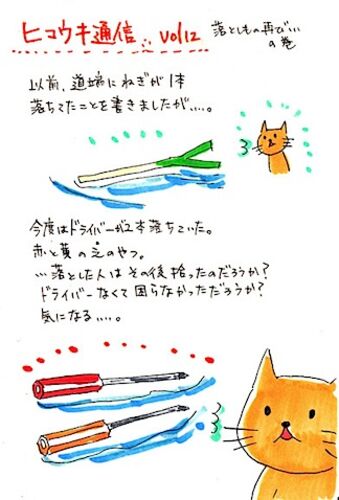 ヒコウキ通信 vol12
落としもの再び…
の巻
以前、道端にねぎが1本
落ちてたことを書きましたが…。
今度はドライバーが2本落ちていた。
赤と黄の色のやつ。
…落とした人はその後拾ったのだろうか?
ドライバーなくて困らなかっただろうか?
気になる…。